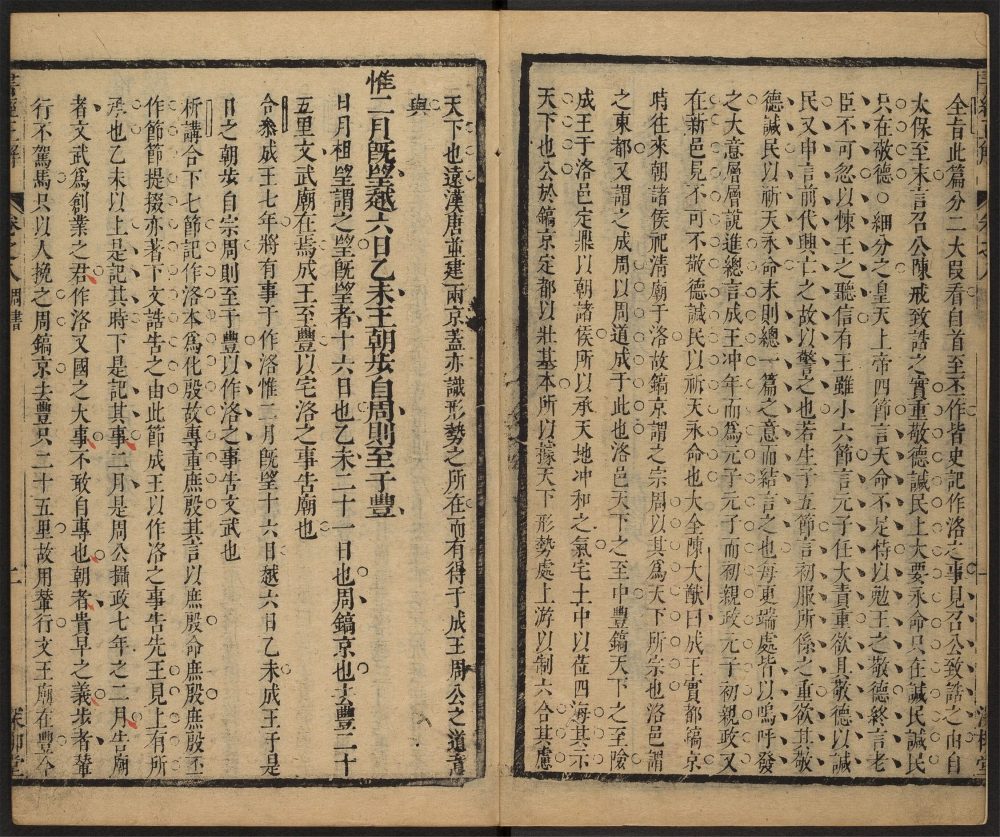 全旨此篇分二大叚看自首至丕作皆史記作洛之事見召公致誥之由自
太保至末言召公陳戒致誥之實重敬德諴民上大要永命只在諴民諴民
只在敬德細分之皇天上帝四節言天命不足恃以勉王之敬德終言老
臣不可忽以悚王之聽信有王雖小六節言元子任大責重欲其敬德以諴
民又申言前代興亡之故以警之也若生子五節言初服所係之重欲其敬
德諴民以祈天永命末則總一篇之意而結言之也每更端處皆以嗚呼發
之大意層層說進總言成王冲年而為元子元子而初親政元子初親政又
在新邑見不可不敬德諴民以祈天永命也大全陳大猷曰成王實都鎬京
時往來朝諸侯祀清廟于洛故鎬京謂之宗周以其為天下所宗也洛邑謂
之東都又謂之成周以周道成于此也洛邑天下之至中豐鎬天下之至險
成王于洛邑定鼎以朝諸侯所以承天地冲和之氣宅土中以莅四海其示
天下也公於鎬京定都以壯基本所以據天下形勢處上游以制六合其慮
天下也遠漢唐並建兩京蓋亦識形勢之所在而有得于成王周公之遺意
與
惟二月旣望越六日乙未王朝步自周則至于豐
日月相望謂之望旣望者十六日也乙未二十一日也周鎬京也去豐二十
五里文武廟在焉成王至豐以宅洛之事告廟也
合叅成王七年將有事于作洛惟二月旣望十六日越六日乙未成王于是
日之朝步自宗周則至于豐以作洛之事告文武也
析講合下七節記作洛本為化殷故專重庶殷其言以庶殷命庶殷庶殷丕
作節節提掇亦著下文誥告之由此節成王以作洛之事告先王見上有所
承也乙未以上是記其時下是記其事二月是周公攝政七年之二月告廟
者文武為創業之君作洛又國之大事不敢自專也朝者貴早之義步者輦
行不駕馬只以人挽之周鎬京去豐只二十五里故用輦行文王廟在豐今
卷之八 周書